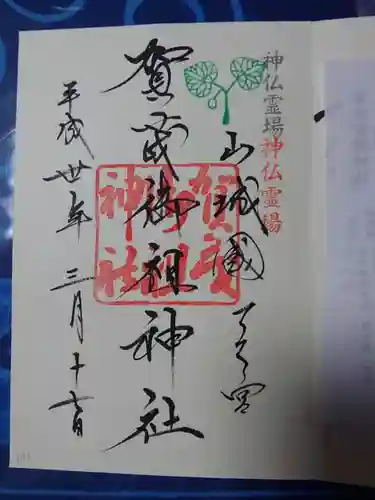 神仏霊場神仏霊場
山城國一之宮
賀茂御祖神社
賀茂御祖神社
平成丗年三月十日